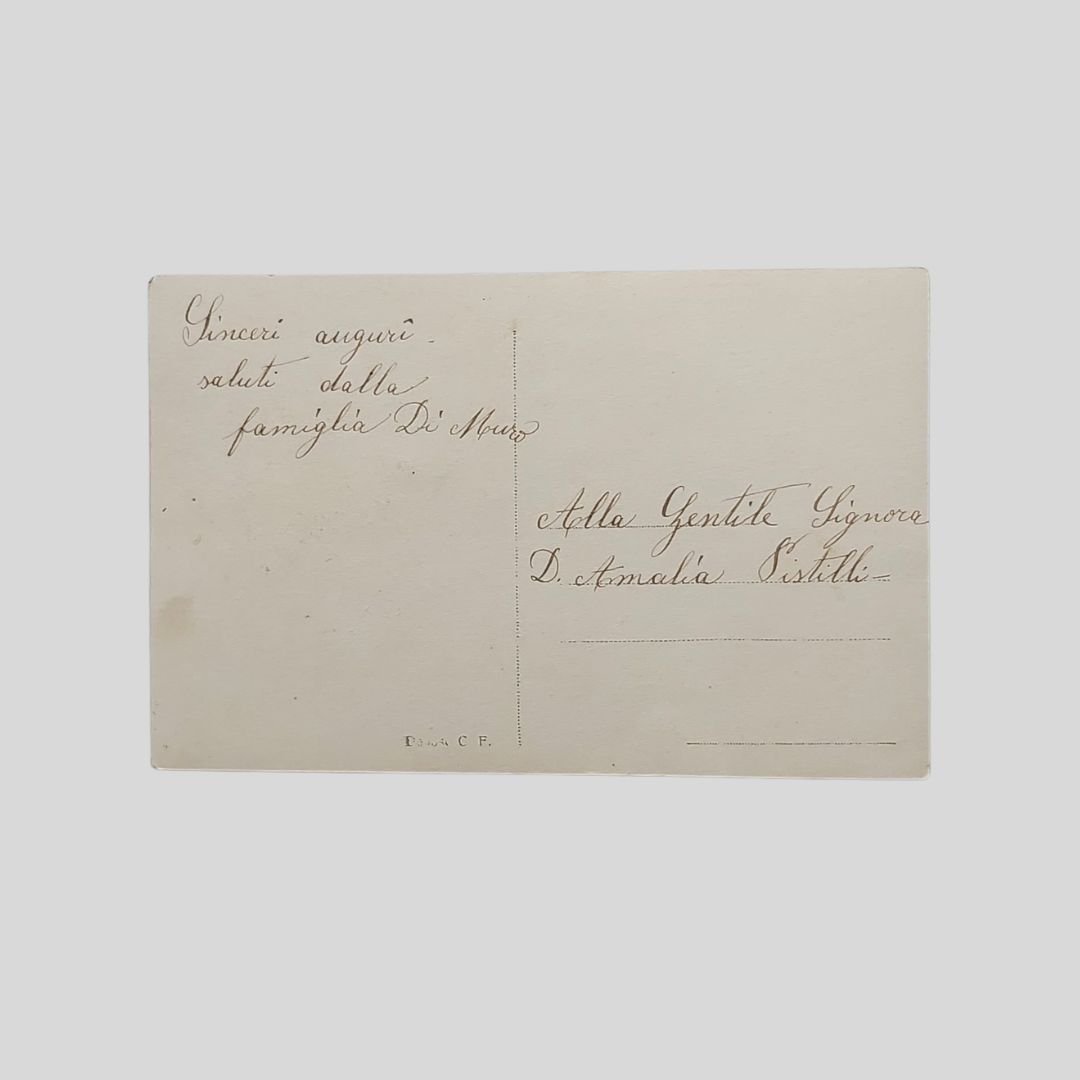 Sinceri auguri -
saluti dalla
famiglia Di Muro
Alla Gentile Signora
D. Amalia Pistilli -
C F.